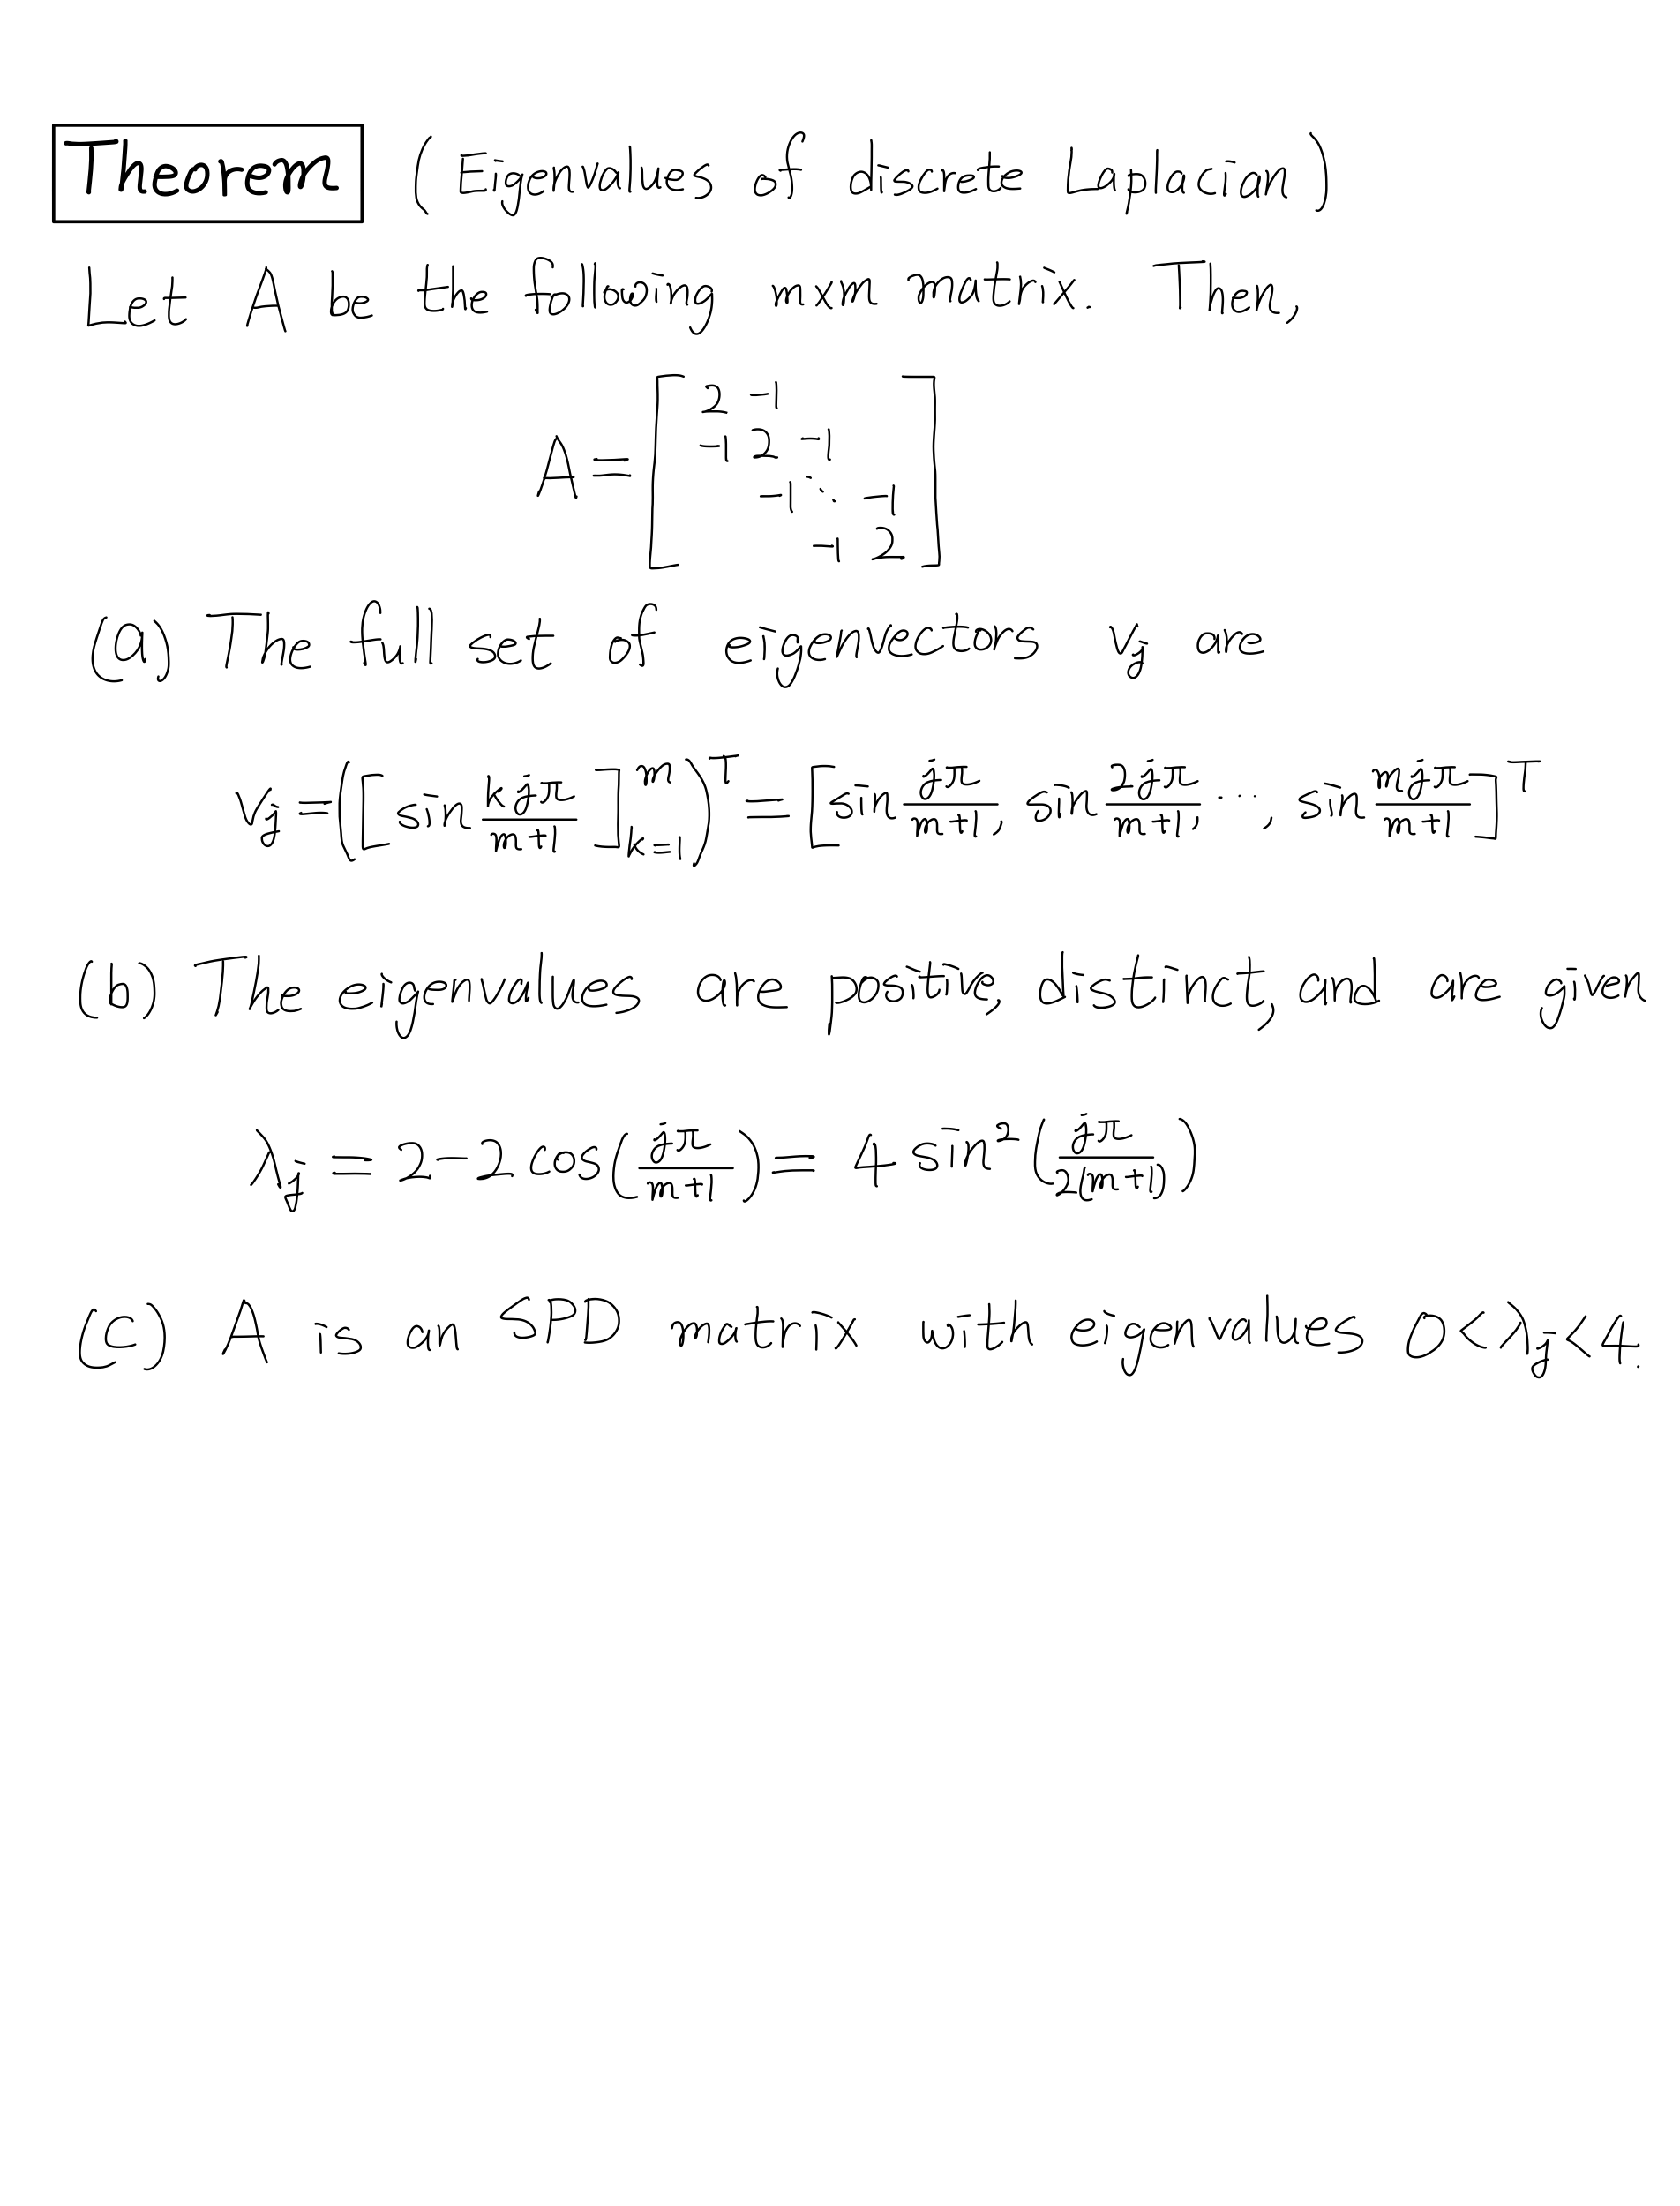 Theorem (Eigenvalues of discrete Laplacian)
Let A be the following m×m matrix. Then,
A = [ 2 -1
-1 2 -1
-1 ⋱ -1
-1 2 ]
(a) The full set of eigenvectors v_j are
v_j = ([sin kjπ/(m+1)]_{k=1}^m)^T = [sin jπ/(m+1), sin 2jπ/(m+1), ⋯, sin mjπ/(m+1)]^T
(b) The eigenvalues are positive, distinct, and are given
λ_j = 2-2cos(jπ/(m+1)) = 4 sin²(jπ/(2(m+1)))
(c) A is an SPD matrix with eigenvalues 0<λ_j<4.